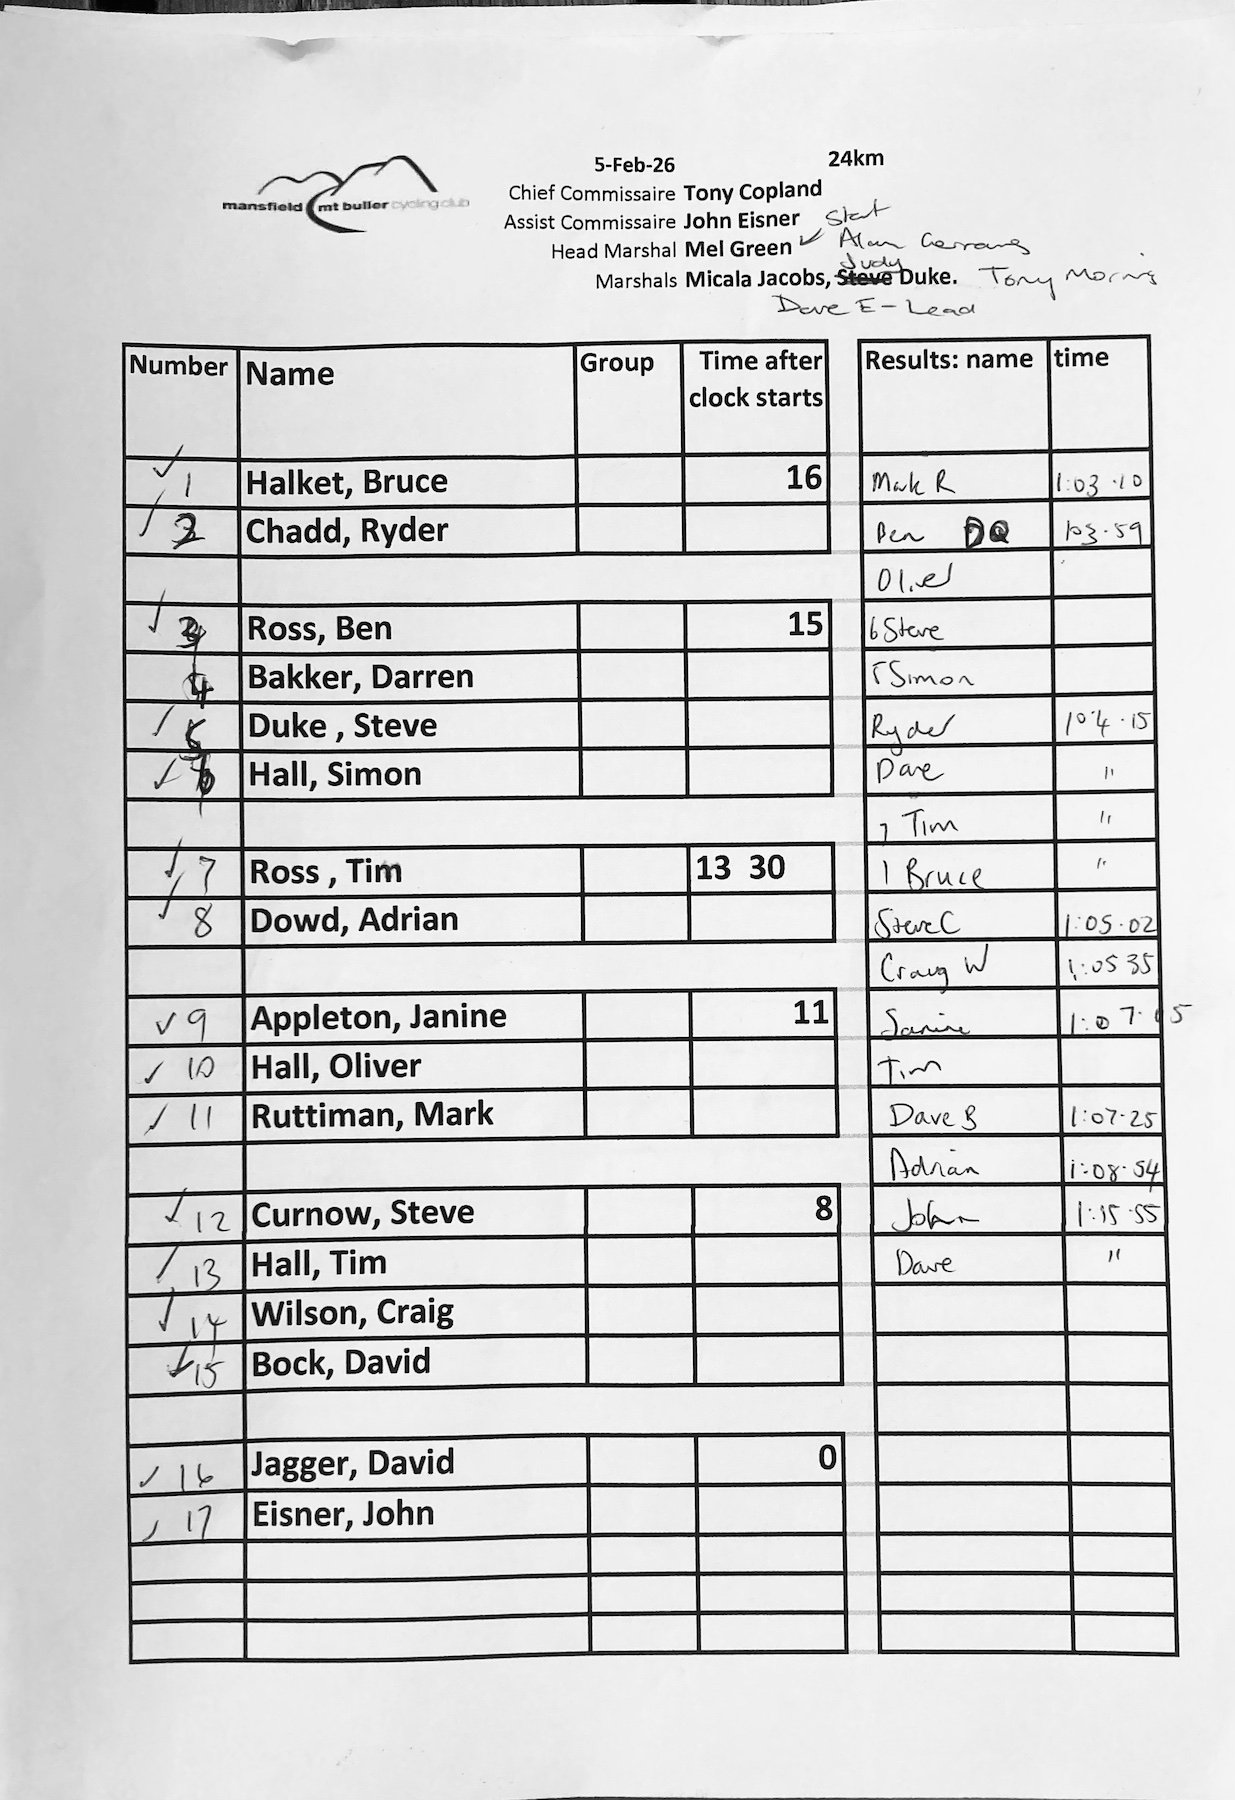 5-Feb-26 24km
mansfield mt buller cycling club
Chief Commissaire Tony Copland
Assist Commissaire John Eisner Start
Head Marshal Mel Green ✓ Alan
Judy
Marshals Micala Jacobs, Steve Duke. Tony Morris
Dave E - Lead
Number Name Group Time after clock starts Results: name time
✓ 1 Halket, Bruce 16 Mark R 1:03.10
✓ 2 Chadd, Ryder Ben DQ 103.59
Oliver
✓ 3 Ross, Ben 15 6 Steve
4 Bakker, Darren 5 Simon
✓ 5 Duke , Steve Ryder 104.15
✓ 6 Hall, Simon Dave "
7 Tim "
✓ 7 Ross , Tim 13 30 1 Bruce "
✓ 8 Dowd, Adrian Steve C 1:05.02
Craig W 1:05 35
✓ 9 Appleton, Janine 11 Janine 1:07.05
✓ 10 Hall, Oliver Tim
✓ 11 Ruttiman, Mark Dave B 1:07.25
Adrian 1:08.54
✓ 12 Curnow, Steve 8 John 1:15.55
✓ 13 Hall, Tim Dave "
✓ 14 Wilson, Craig
✓ 15 Bock, David
✓ 16 Jagger, David 0
✓ 17 Eisner, John